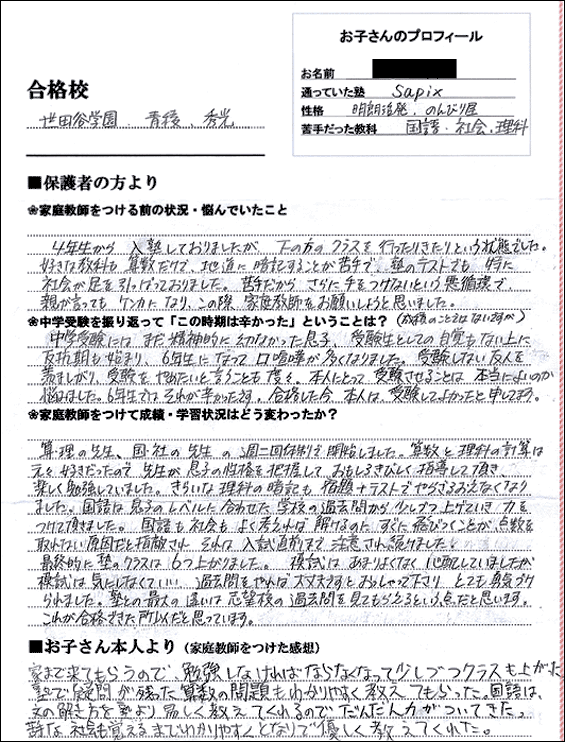 お子さんのプロフィール
お名前
通っていた塾 Sapix
性格 明朗活発、のんびり屋
苦手だった教科 国語・社会、理科
合格校
世田谷学園、青稜、秀光
■保護者の方より
❀家庭教師をつける前の状況・悩んでいたこと
4年生から入塾しておりましたが、下の方のクラスを行ったりきたりという状態でした。
好きな教科も算数だけで、地道に暗記することが苦手で、塾のテストでも特に
社会が足を引っぱっておりました。苦手だからさらに手をつけないという悪循環で、
親が言ってもケンカになり、この際、家庭教師をお願いしようと思いました。
❀中学受験を振り返って「この時期は辛かった」ということは？（成績のことではないですが）
中学受験にはまだ精神的に幼なかった息子、受験生としての自覚もない上に
反抗期も始まり、6年生になって口喧嘩が多くなりました。受験しない友人を
羨ましがり、受験をやめたいと言うことも度々。本人にとって受験させることは本当によいのか
悩みました。6年生ではそれが辛かったです。合格した今、本人は、受験してよかったと申してます。
❀家庭教師をつけて成績・学習状況はどう変わったか？
算・理の先生、国・社の先生の週二回体制で開始しました。算数と理科の計算は
元々好きだったので、先生が息子の性格を把握して、おもしろきびしく指導して頂き
楽しく勉強していました。きらいな理科の暗記も宿題+テストでやらざるおえなくなり
ました。国語は息子のレベルに合わせた学校の過去問から少しづつ上げていき力を
つけて頂きました。国語も社会もよく考えれば解けるのに、すぐに飛びつくことが点数を
取れない原因だと指摘され、それは入試直前まで注意され続けました。
最終的に塾のクラスは6つ上がりました。模試はあまりよくなく心配していましたが
模試は気にしなくていい、過去問をやれば大丈夫ですとおっしゃって下さり、とても勇気づけ
られました。塾との最大の違いは志望校の過去問を見てもらえるという点だと思います。
これが合格できた所以だと思っています。
■お子さん本人より（家庭教師をつけた感想）
家まで来てもらうので、勉強しなければならなくなって少しづつクラスも上がった
塾で疑問が残った算数の問題もわかりやすく教えてもらった。国語は、
文の解き方を塾より易しく教えてくれるのでだんだん力がついてきた。
な社会も覚えるまでわかりやすくとなりで優しく教えてくれた。